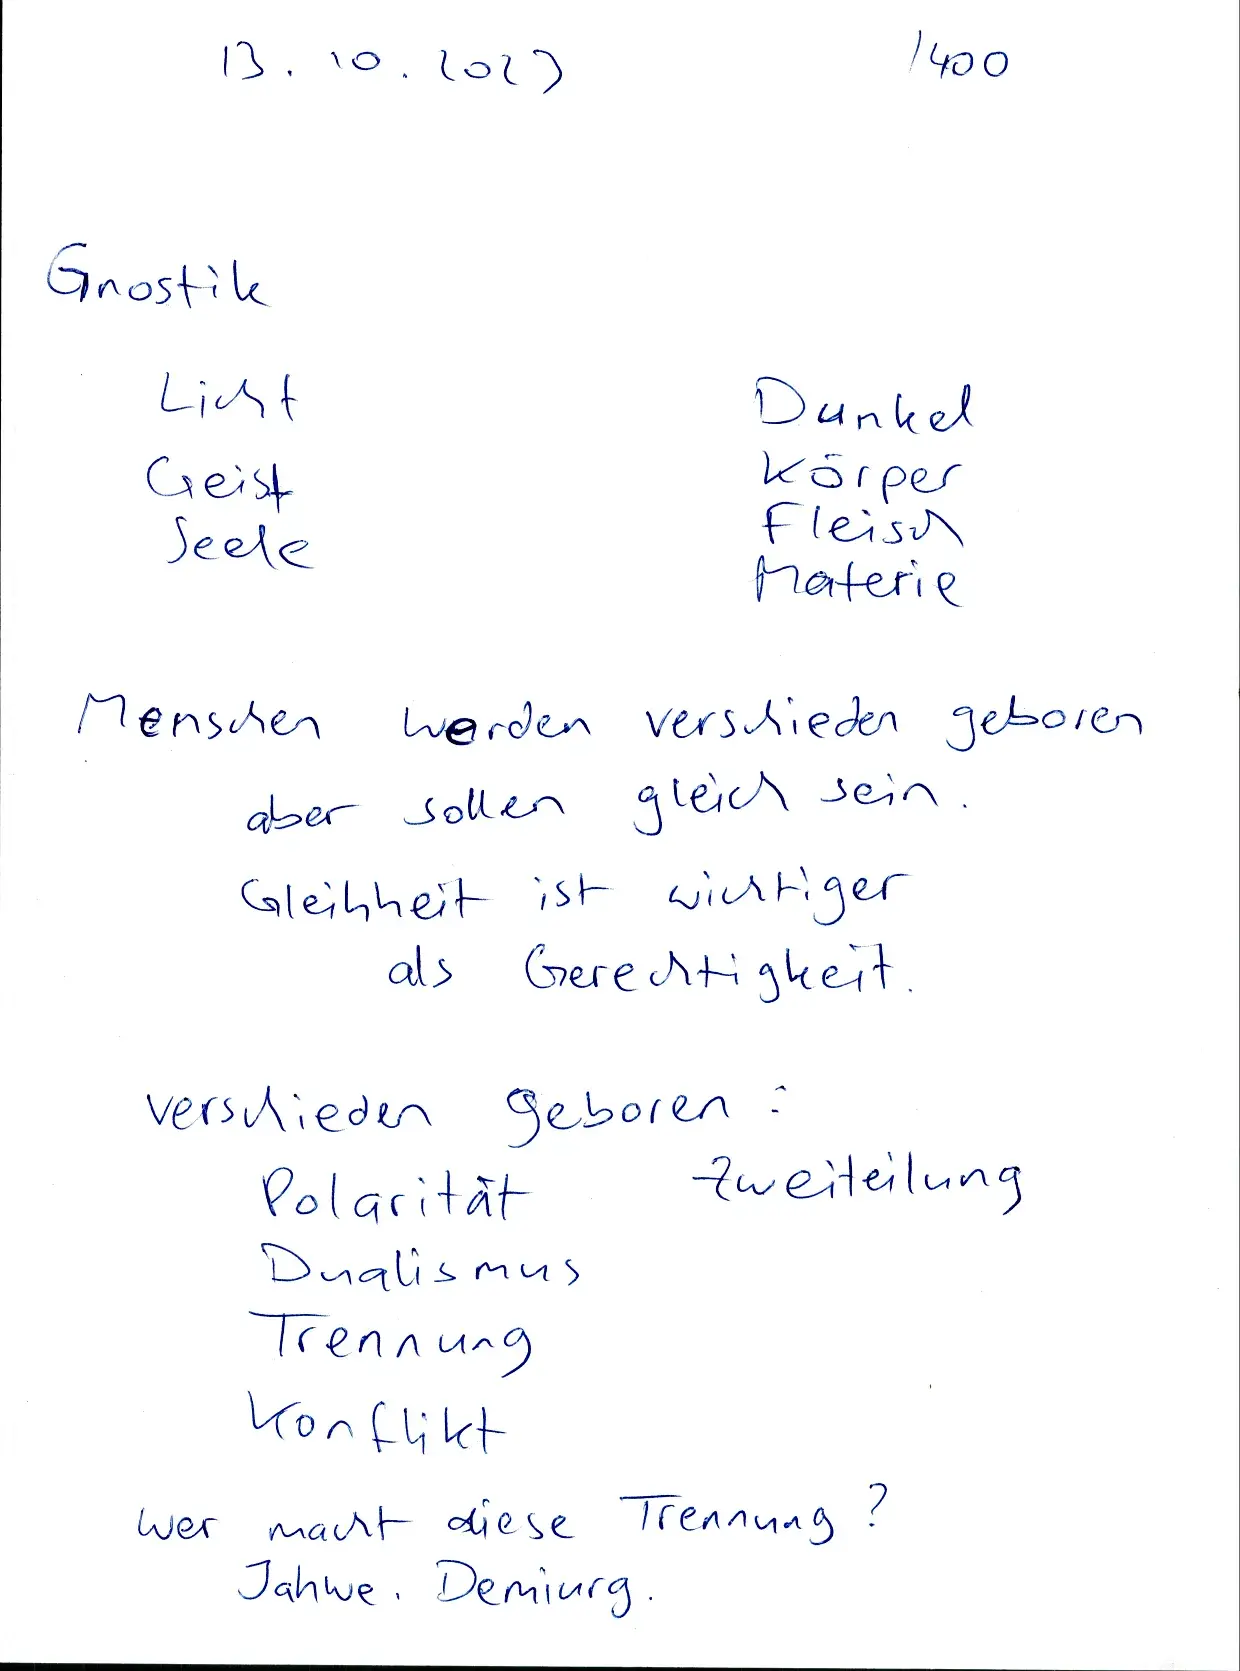 13.10.2023 1400
Gnostik
Licht Dunkel
Geist Körper
Seele Fleisch
Materie
Menschen werden verschieden geboren
aber sollen gleich sein.
Gleihheit ist wichtiger
als Gerechtigkeit.
verschieden geboren:
Polarität Zweiteilung
Dualismus
Trennung
Konflikt
wer macht diese Trennung?
Jahwe. Demiurg.